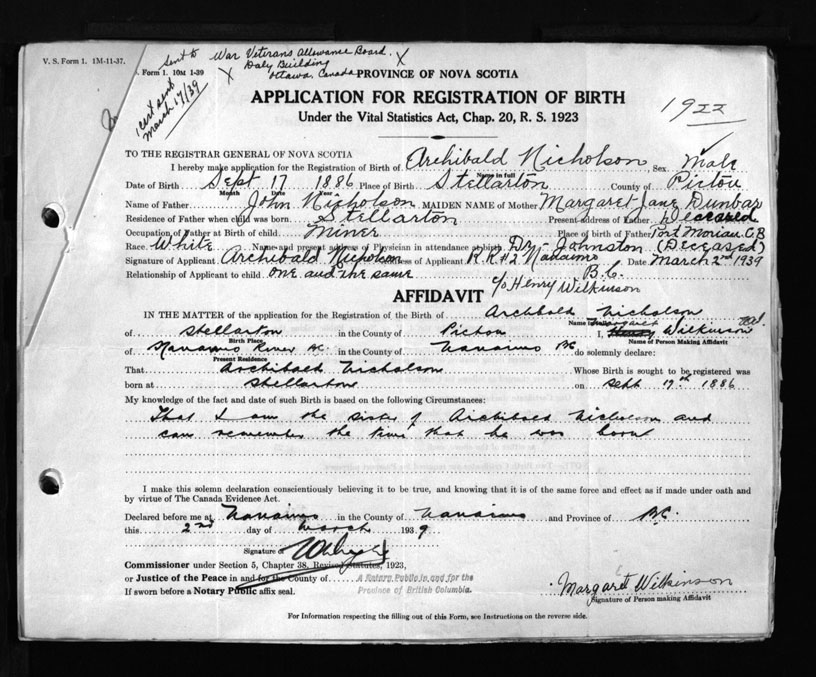 V. S. Form 1. 1M-11-37.
Sent to War Veterans Allowance Board. X
Form 1. 10M 1-39
X Daly Building
Ottawa, Canada
PROVINCE OF NOVA SCOTIA
1 cert sent
March 17/39
APPLICATION FOR REGISTRATION OF BIRTH
1922
Under the Vital Statistics Act, Chap. 20, R. S. 1923
TO THE REGISTRAR GENERAL OF NOVA SCOTIA
I hereby make application for the Registration of Birth of Archibald Nicholson, Sex Male
Name in full
Date of Birth Sept 17 1886 Place of Birth Stellarton County of Pictou
Month Date Year
Name of Father John Nicholson MAIDEN NAME of Mother Margaret Jane Dunbar
Residence of Father when child was born Stellarton Present address of Father Deceased
Occupation of Father at Birth of child Miner Place of birth of Father Port Morian C.B
Race White Name and present address of Physician in attendance at birth Dr. Johnston (Deceased)
Signature of Applicant Archibald Nicholson Address of Applicant R R #2 Nanaimo Date March 2nd 1939
B.C.
Relationship of Applicant to child one and the same
c/o Henry Wilkinson
AFFIDAVIT
IN THE MATTER of the application for the Registration of Birth of Archibald Nicholson
Name in full Margaret
of Stellarton in the County of Pictou I, Henry Wilkinson
Birth Place Name of Person Making Affidavit
of Nanaimo River BC in the County of Nanaimo BC do solemnly declare:
Present Residence
That Archibald Nicholson Whose Birth is sought to be registered was
born at Stellarton on Sept 17th 1886
My knowledge of the fact and date of such Birth is based on the following Circumstances:
That I am the sister of Archibald Nicholson and
can remember the time that he was born
I make this solemn declaration conscientiously believing it to be true, and knowing that it is of the same force and effect as if made under oath and
by virtue of The Canada Evidence Act.
Declared before me at Nanaimo in the County of Nanaimo and Province of B.C.
this 2nd day of March 1939
Signature of
Commissioner under Section 5, Chapter 38, Revised Statutes, 1923,
or Justice of the Peace in and for the County of A Notary Public in and for the
If sworn before a Notary Public affix seal. Province of British Columbia.
Margaret Wilkinson
Signature of Person making Affidavit
For Information respecting the filling out of this Form, see Instructions on the reverse side.